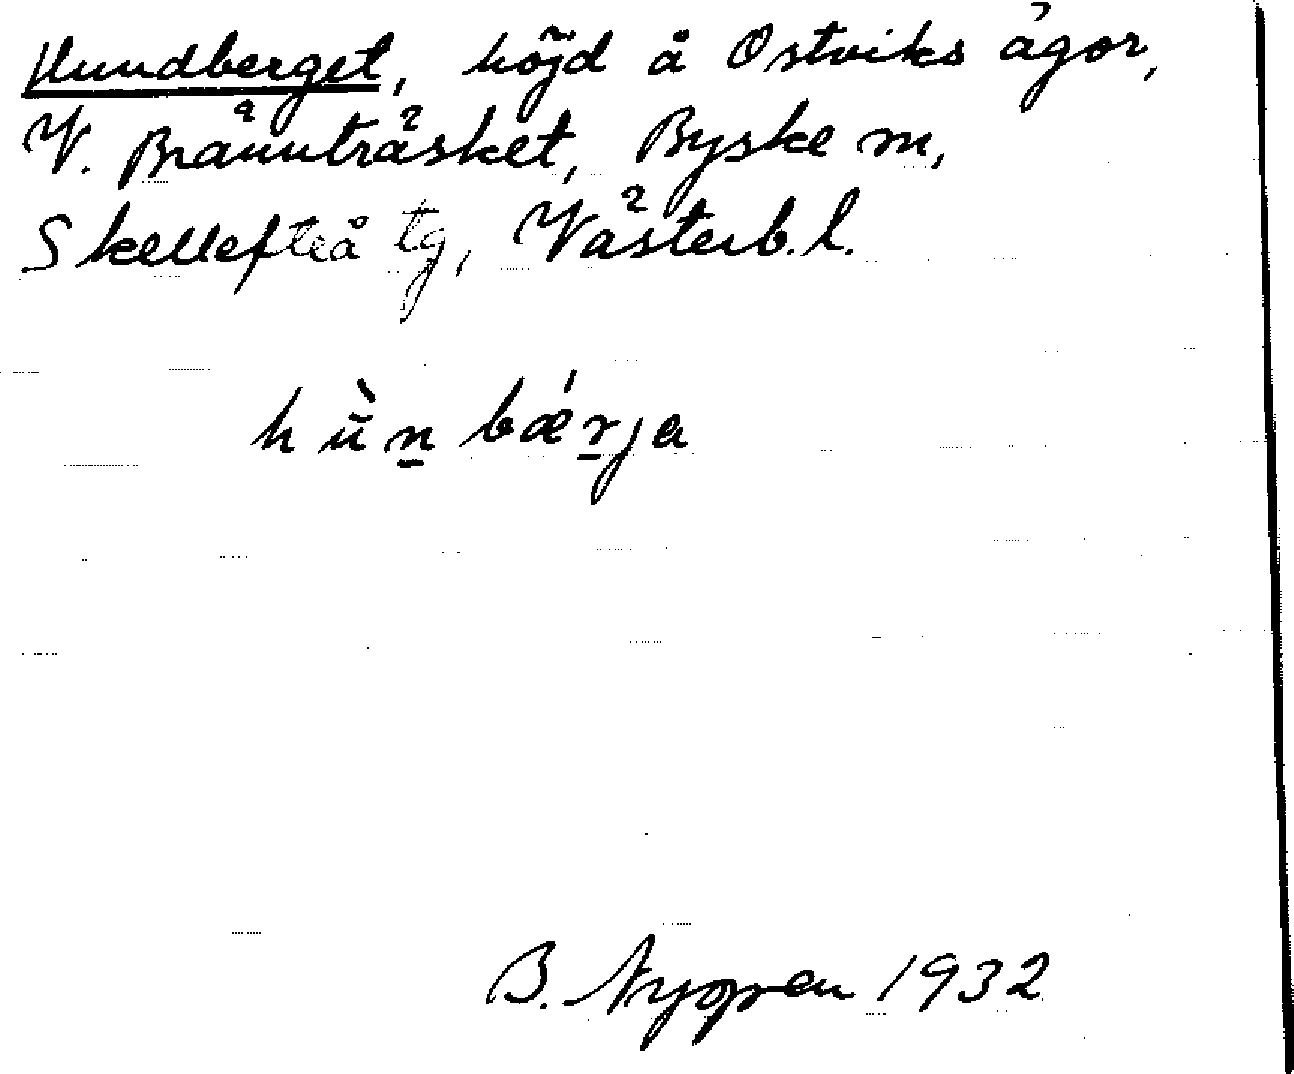 Hundberget, höjd å Ostviks ägor,
V. Brännträsket, Byske sn,
Skellefteå tg, Västerb. l.
hù̄n̠ bǽr̠ja
B. Nygren 1932